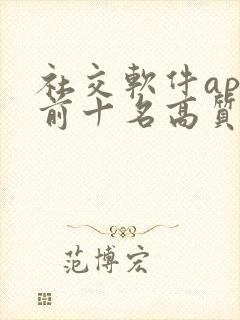 社交軟件ap
前十名高質
范博宏